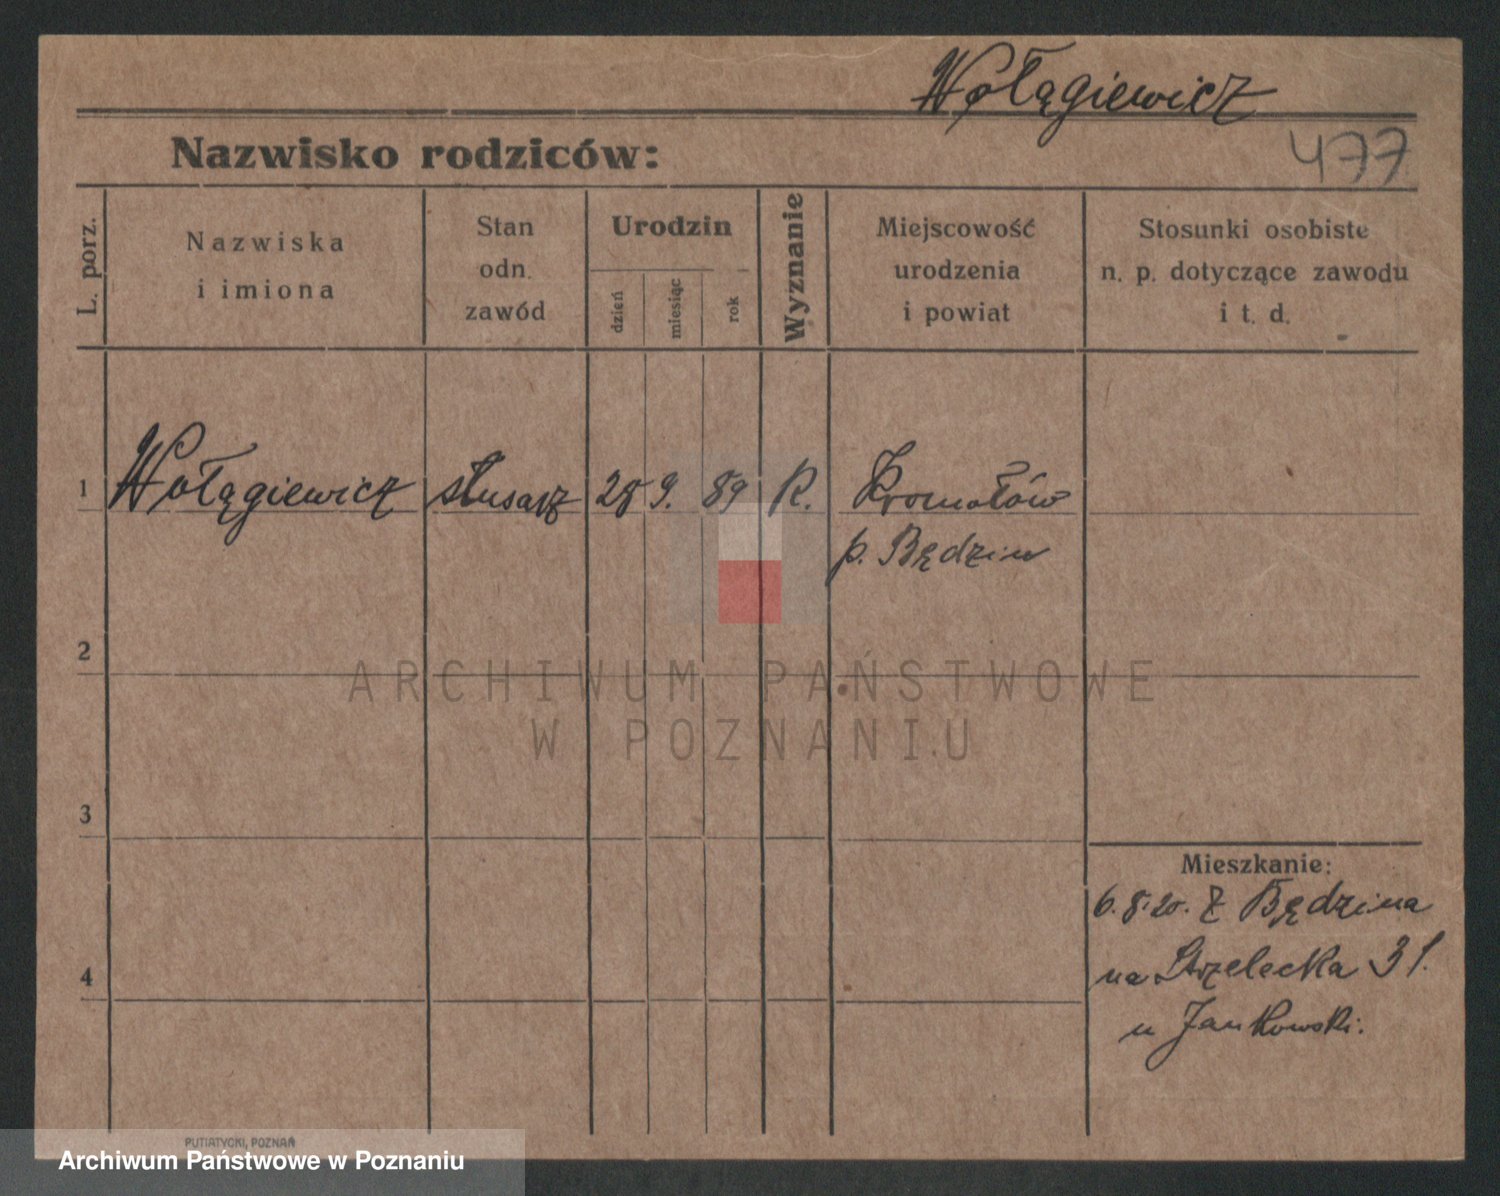 Wołągiewicz
477
Nazwisko rodziców:
L. porz.
Nazwiska
i imiona
Stan
odn.
zawód
Urodzin
dzień
miesiąc
rok
Wyznanie
Miejscowość
urodzenia
i powiat
Stosunki osobiste
n. p. dotyczące zawodu
i t. d.
1 Wołągiewicz ślusarz 28 9. 89 R. Kromołów
p. Będzin
2
ARCHIWUM PAŃSTWOWE
W POZNANIU
3
Mieszkanie:
6.8.20. z Będzina
na Strzelecka 31.
4
u Jankowski.
PUTIATYCKI, POZNAŃ
Archiwum Państwowe w Poznaniu